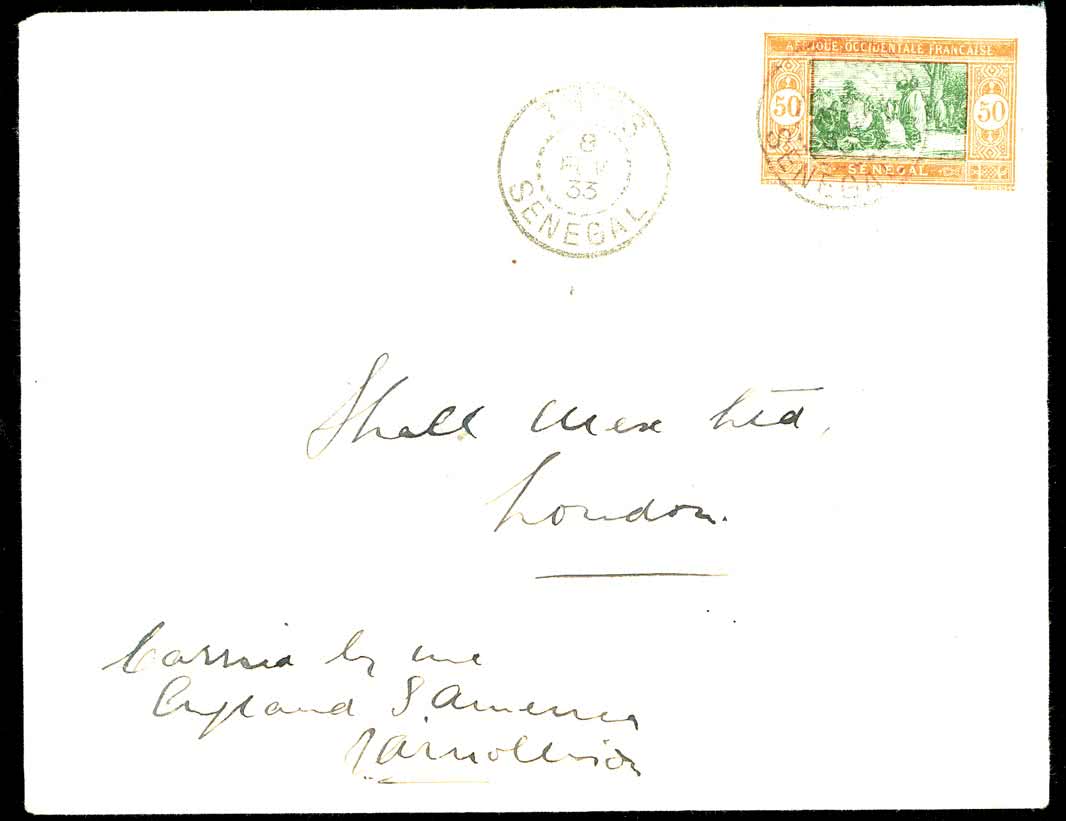 AFRIQUE OCCIDENTALE FRANCAISE
50 50
SENEGAL
THIES
8
FEV
33
SENEGAL
SENEGAL
Shell Mex Ltd,
London.
Carried by me
England S. America
JAMollison